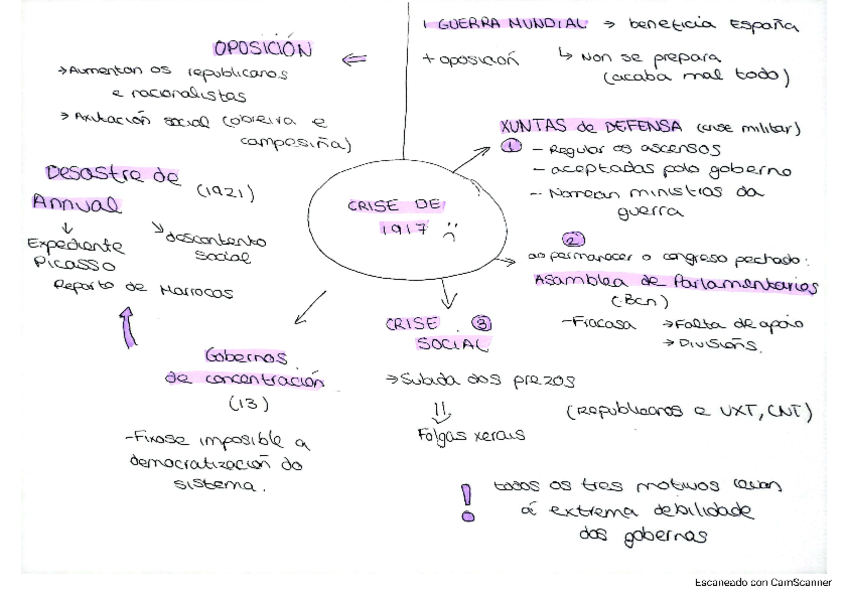 I GUERRA MUNDIAL → beneficia España
+ oposición ↳ Non se prepara
(acaba mal todo)
OPOSICIÓN ⇐
→ Aumentan os republicanos
e nacionalistas
→ Axitación social (obreira e
campesiña)
XUNTAS de DEFENSA (crise militar)
① - Regular os ascensos
- aceptadas polo goberno
- Nomean ministros da
guerra
Desastre de
Annual (1921)
↓
Expediente
Picasso
↘ descontento
social
Reparto de Marrocos
CRISE DE
1917 :(
②
ao permanecer o congreso pechado:
Asamblea de Parlamentarios
(Bcn)
- Fracasa → Falta de apoio
→ Divisións.
CRISE ③
SOCIAL
→ Subida dos prezos
⇓
Folgas xerais
(Republicanos e UXT, CNT)
Gobernos
de concentración
(13)
- Fixose imposible a
democratización do
sistema.
! todos os tres motivos levan
á extrema debilidade
dos gobernos
Escaneado con CamScanner